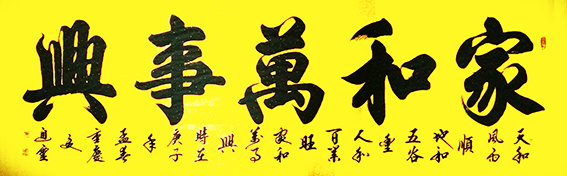 家和萬事興
天和
風雨
順
地和
五谷
人和
百業
旺
家和
萬事
興
時在
庚子
年
孟春
重慶